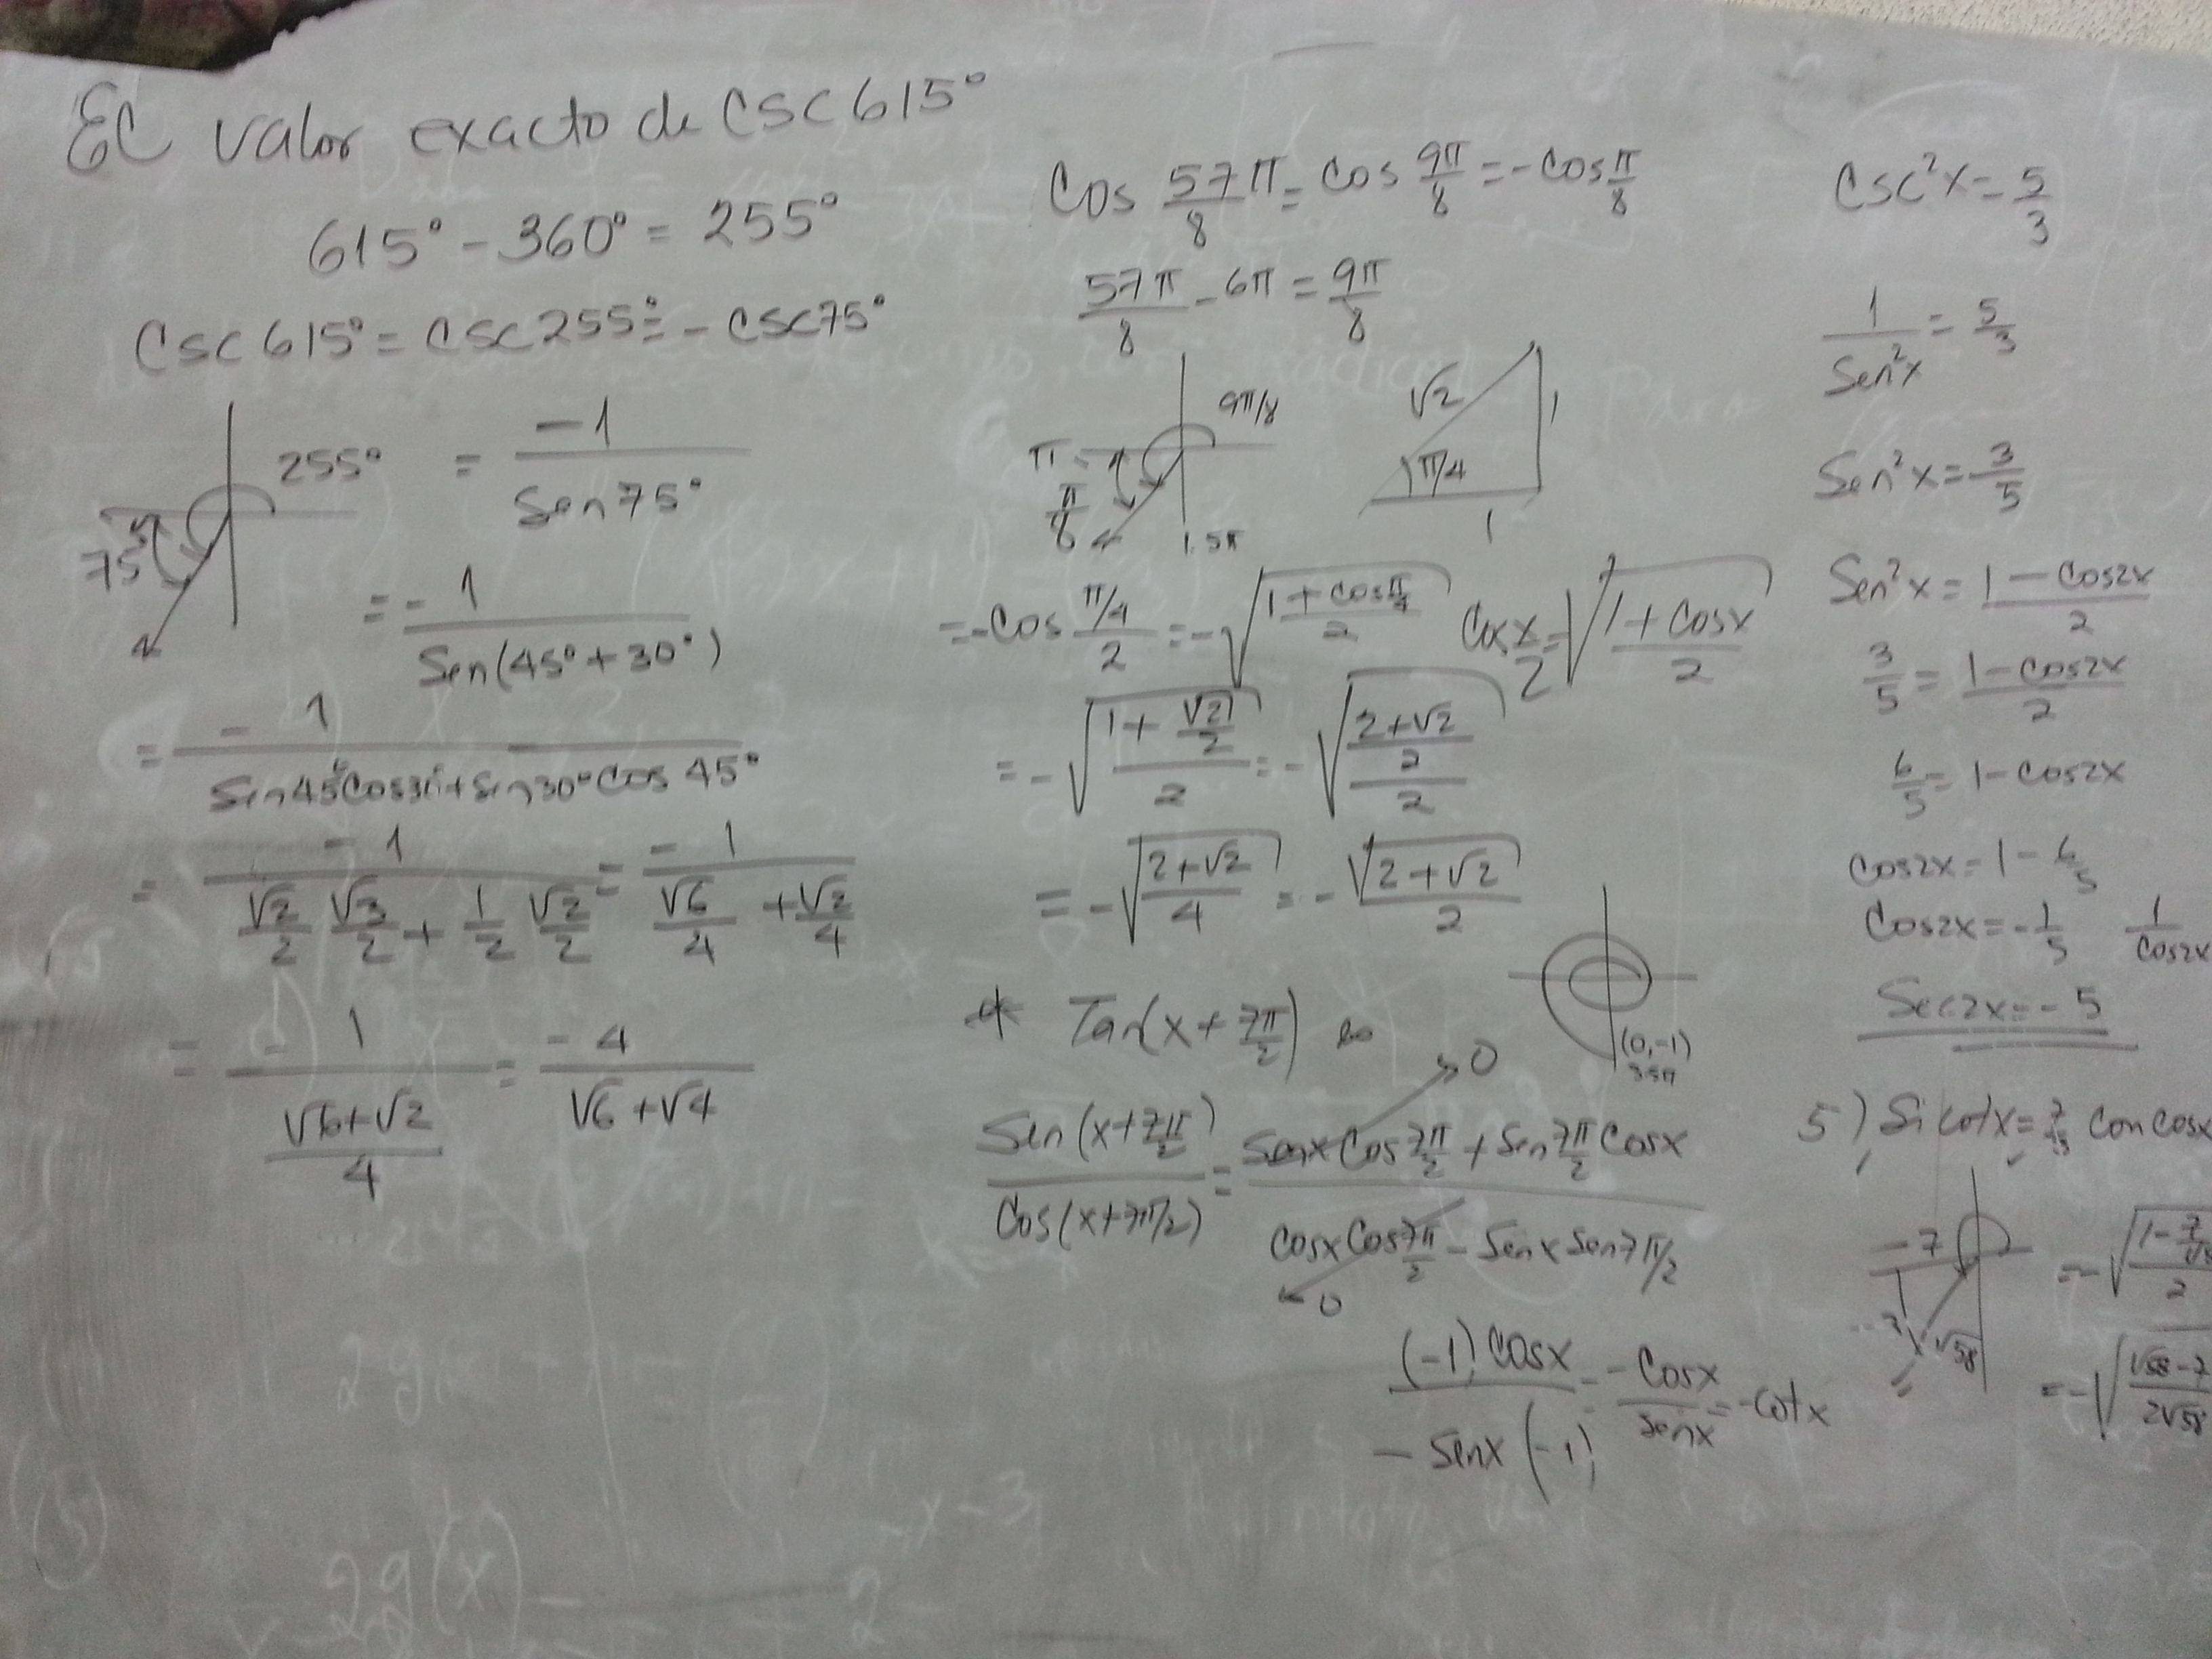 El valor exacto de Csc 615°
615° - 360° = 255°
Csc 615° = Csc 255° = - Csc 75°
255°
75°
= -1 / Sen 75°
= - 1 / Sen(45° + 30°)
= - 1 / Sen 45° Cos 30° + Sen 30° Cos 45°
= - 1 / (√2/2 √3/2 + 1/2 √2/2) = - 1 / (√6/4 + √2/4)
= - 1 / ((√6+√2)/4) = - 4 / (√6 + √4)
Cos 57π/8 = Cos 9π/8 = - Cos π/8
57π/8 - 6π = 9π/8
9π/8
π
π/8
1.5π
√2
1
π/4
1
= - Cos (π/4)/2 = - √((1 + Cos π/4)/2) Cos x/2 = √((1 + Cosx)/2)
= - √((1 + √2/2)/2) = - √(((2+√2)/2)/2)
= - √((2+√2)/4) = - √(2+√2)/2
(0,-1)
3.5π
* Tan(x + 7π/2) es
0
Sen(x + 7π/2) / Cos(x + 7π/2) = (Senx Cos 7π/2 + Sen 7π/2 Cosx) / (Cosx Cos 7π/2 - Senx Sen 7π/2)
0
(-1) Cosx / - Senx (-1) = - Cosx / Senx = - cotx
Csc²x = 5/3
1/Sen²x = 5/3
Sen²x = 3/5
Sen²x = (1 - Cos2x)/2
3/5 = (1 - Cos2x)/2
6/5 = 1 - Cos2x
Cos2x = 1 - 6/5
Cos2x = - 1/5 1/Cos2x
Sec2x = - 5
5) Si cotx = 7/3 con cosx
-7
-3
√58
= - √((1 - 7/√5
2
= - √((√58 - 7)/2√58